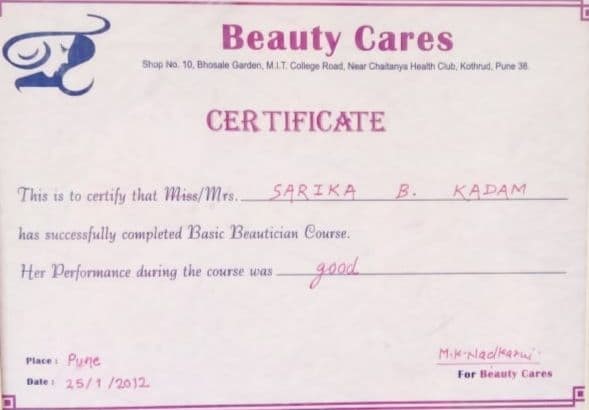 Beauty Cares
Shop No. 10, Bhosale Garden, M.I.T. College Road, Near Chaitanya Health Club, Kothrud, Pune 38.
CERTIFICATE
This is to certify that Miss/Mrs. SARIKA B. KADAM
has successfully completed Basic Beautician Course.
Her Performance during the course was good
Place : Pune
M.K.Nadkarni.
Date : 25/1/2012
For Beauty Cares